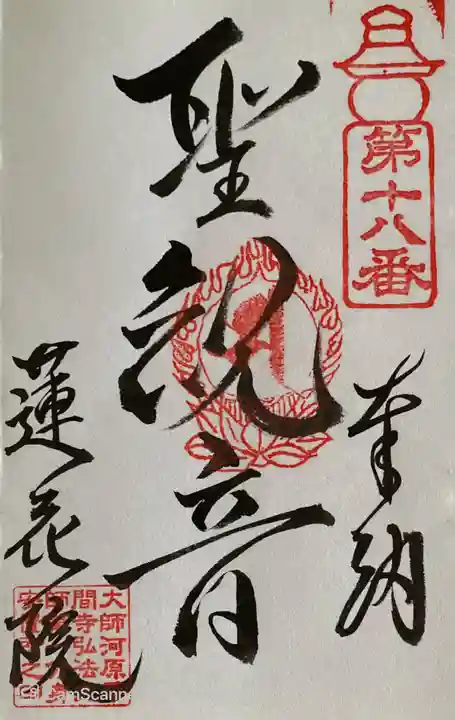 第十八番
奉納
聖観音
蓮花院
大師河原
間寺弘法
CamScanne